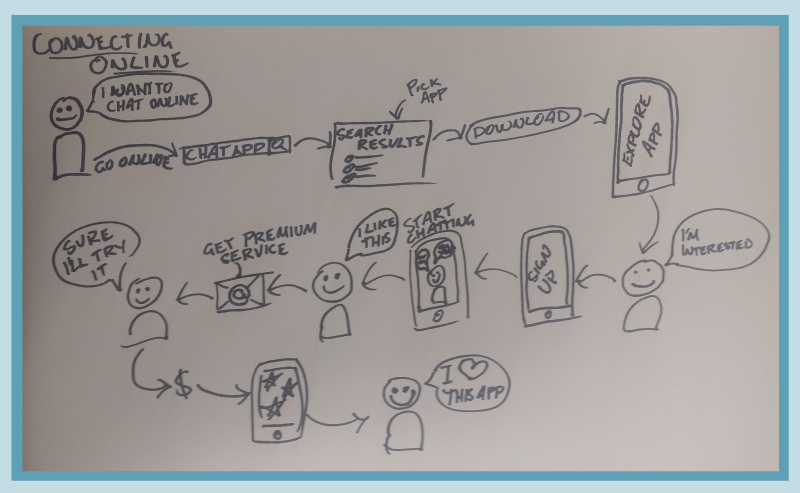 CONNECTING
ONLINE
I WANT TO
CHAT ONLINE
GO ONLINE
CHAT APP
PICK
APP
SEARCH
RESULTS
DOWNLOAD
EXPLORE
APP
I'M
INTERESTED
SIGN
UP
START
CHATTING
I LIKE
THIS
GET PREMIUM
SERVICE
@
SURE
I'LL TRY
IT
$
I ♡
THIS APP